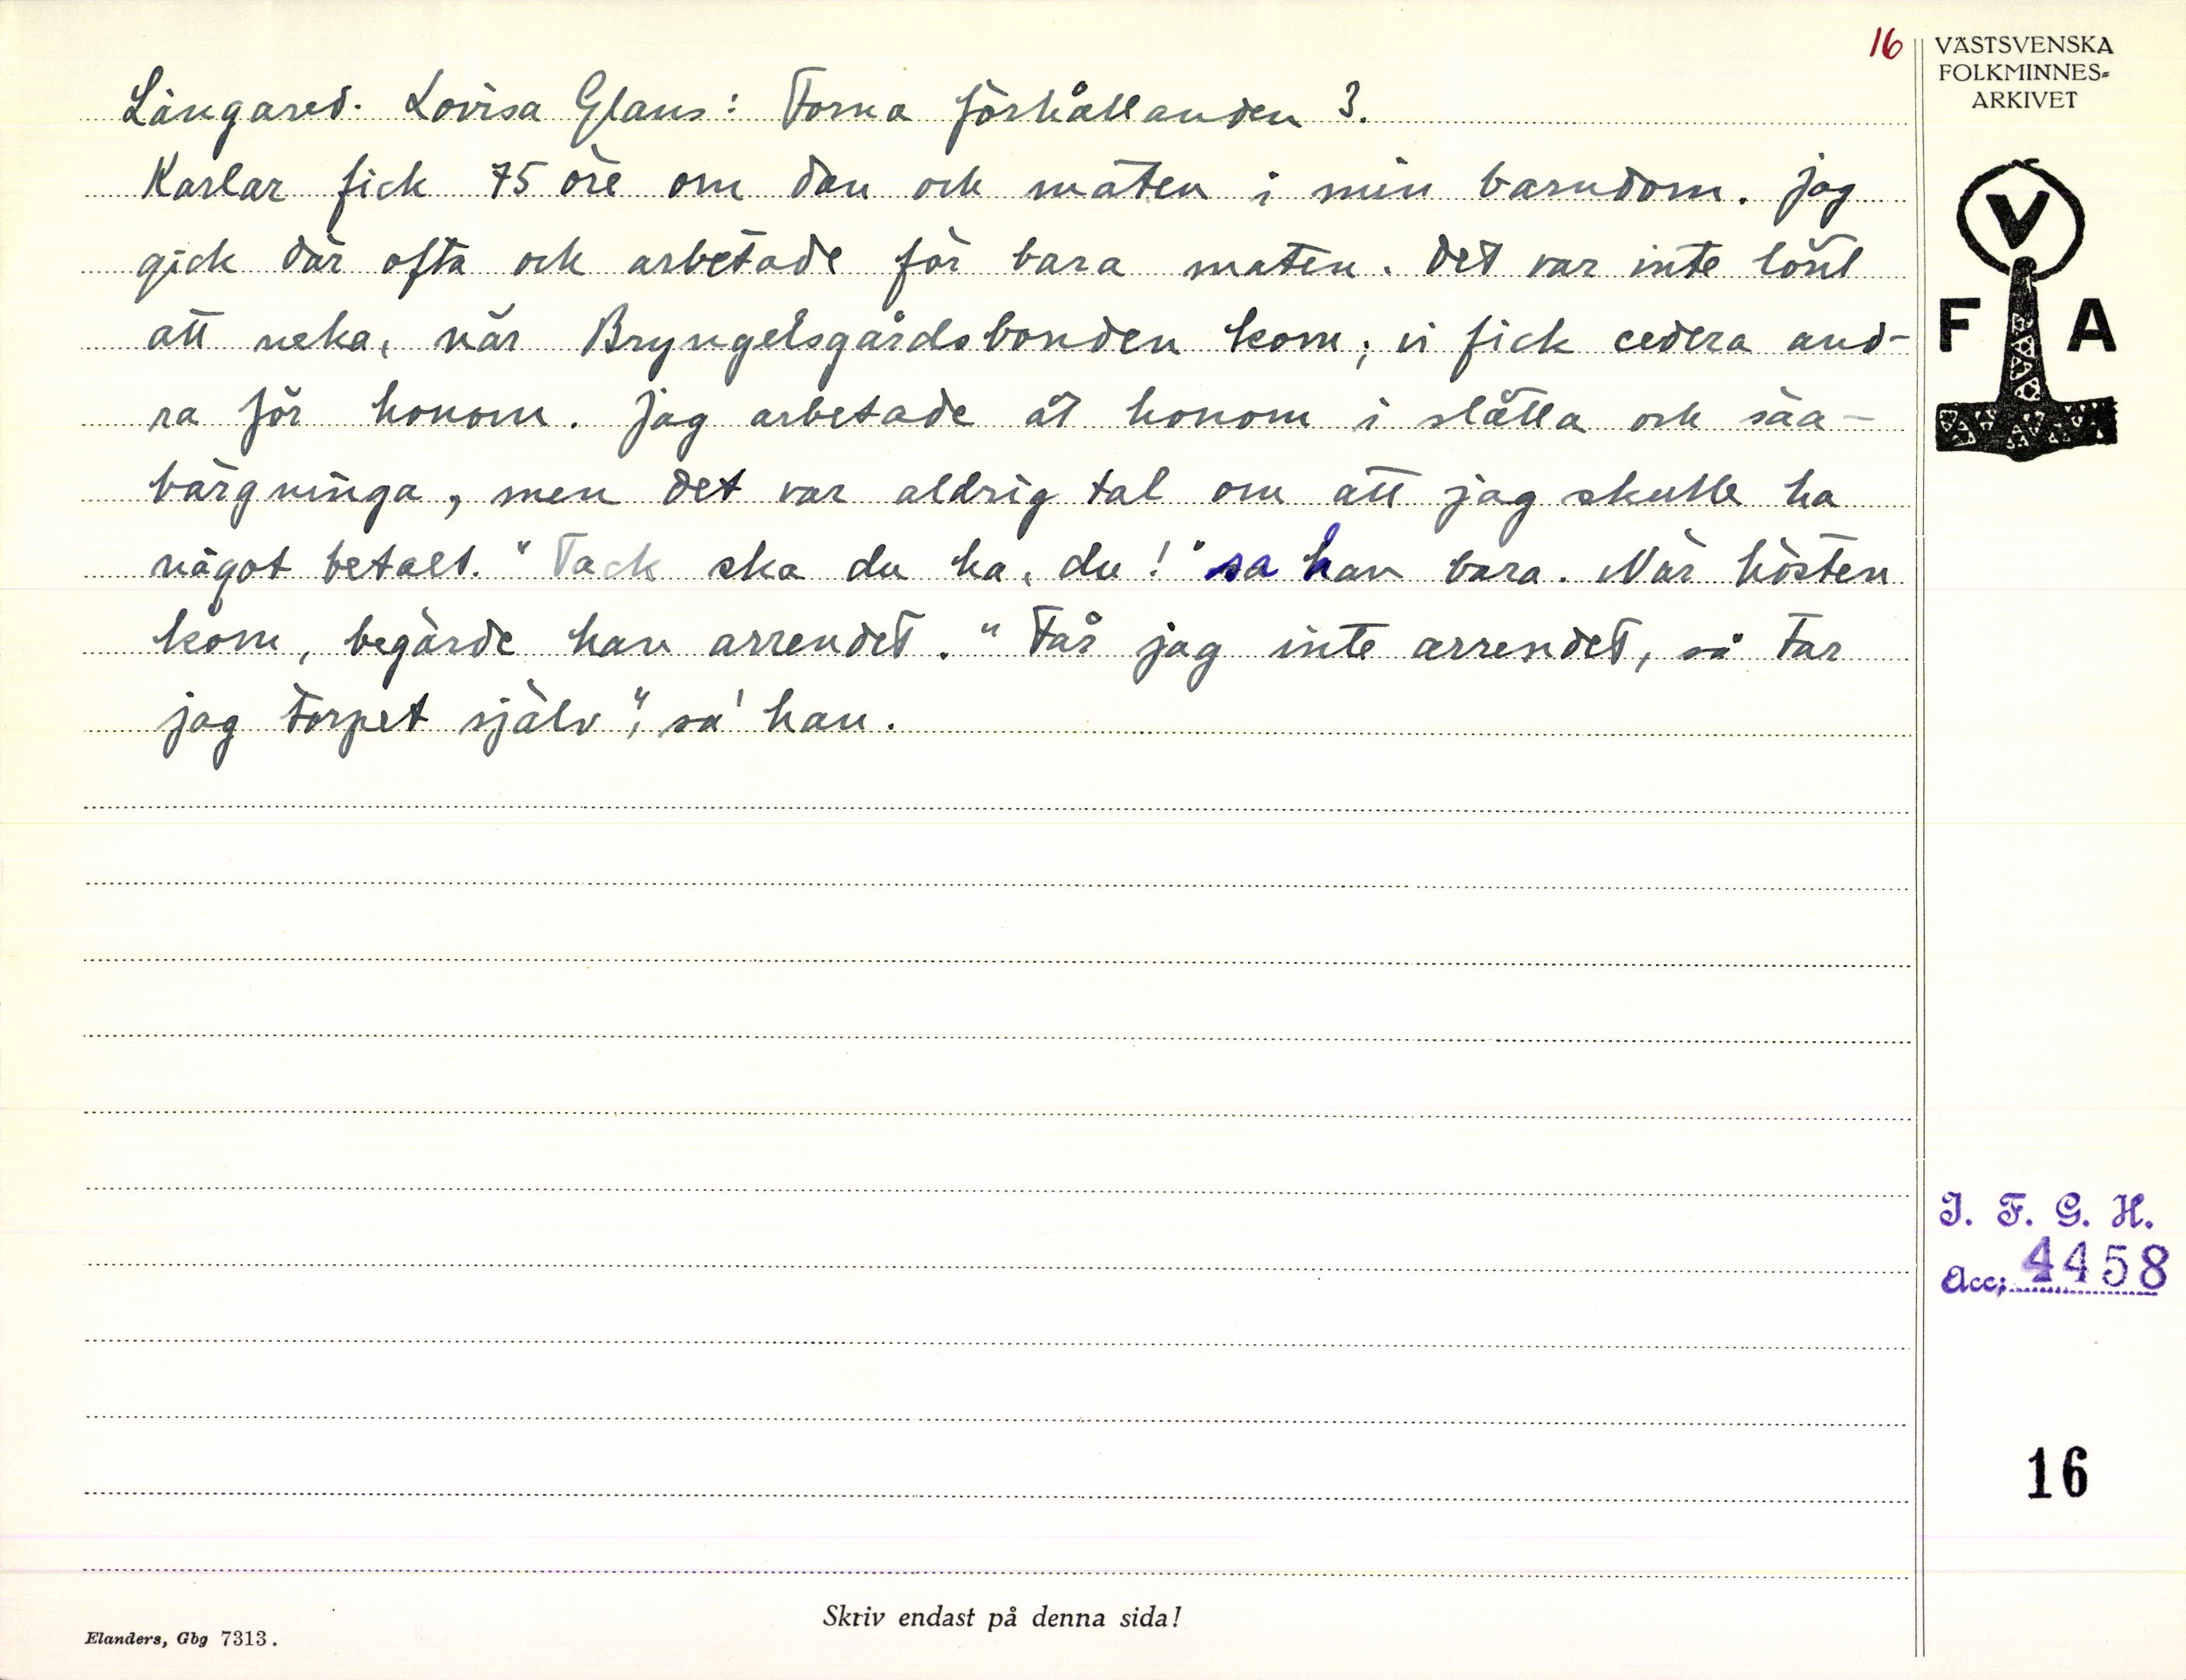 16
VÄSTSVENSKA
FOLKMINNES-
ARKIVET
V
F A
Långared. Lovisa Glans: Forna förhållanden 3.
Karlar fick 75 öre om dan och maten i min barndom. Jag
gick där ofta och arbetade för bara maten. Det var inte lönt
att neka, när Bryngelsgårdsbonden kom; vi fick cedera and-
ra för honom. Jag arbetade åt honom i slåtta och säa-
bärgninga, men det var aldrig tal om att jag skulle ha
något betalt. "Tack ska du ha, du!" sa han bara. När hösten
kom, begärde han arrendet. "Får jag inte arrendet, så tar
jag torpet själv", sa' han.
I. F. G. H.
Acc; 4458
16
Skriv endast på denna sida!
Elanders, Gbg 7313.